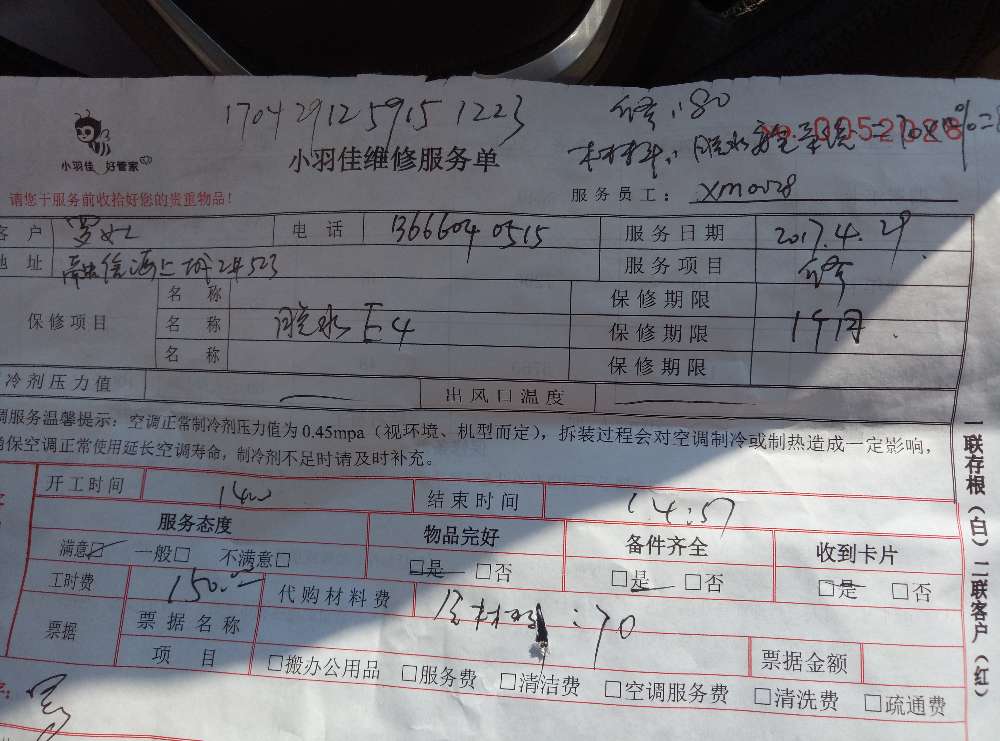 170429125915 1223
修:80
小羽佳 好管家
小羽佳维修服务单
材料:脱水
请您于服务前收拾好您的贵重物品!
服务员工: xm0028
客户 罗女士 电话 13666040515 服务日期 2017.4.29
地址 523 服务项目 修
保修项目 名称 保修期限
名称 脱水E4 保修期限 1个月
名称 保修期限
冷剂压力值 出风口温度
调服务温馨提示:空调正常制冷剂压力值为0.45mpa(视环境、机型而定),拆装过程会对空调制冷或制热造成一定影响,
确保空调正常使用延长空调寿命,制冷剂不足时请及时补充。
开工时间 1400 结束时间 14:57
服务态度 物品完好 备件齐全 收到卡片
满意☑ 一般□ 不满意□ □是 □否 □是 □否 □是 □否
工时费 150.00 代购材料费 含材料:70
票据 票据名称
项目 □搬办公用品 □服务费 □清洁费 □空调服务费 □清洗费 □疏通费
票据金额
一联存根(白)二联客户(红)
字:罗